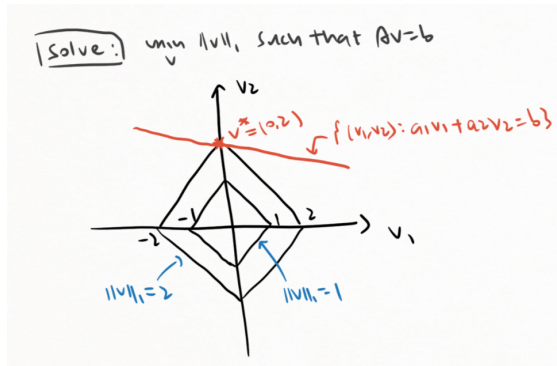 Solve: min ||v||₁ such that Av=b
v
v2
v*=(0,2)
{(v1,v2): a1v1+a2v2=b}
-1
1
2
-2
v1
||v||₁=2
||v||₁=1